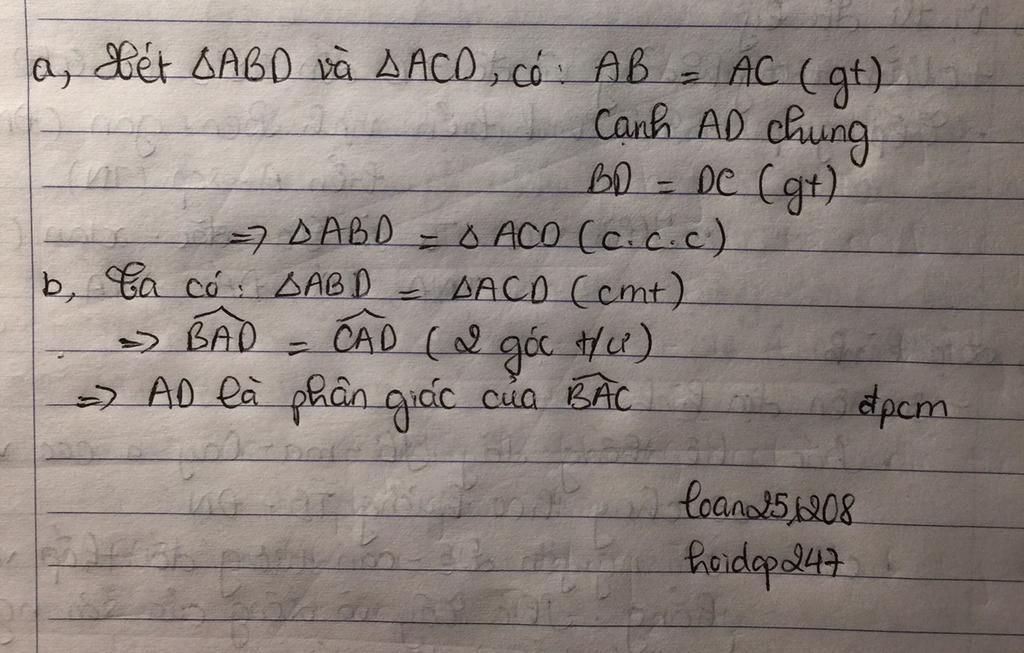 a, Xét ΔABD và ΔACD, có: AB = AC (gt)
Cạnh AD chung
BD = DC (gt)
=> ΔABD = ΔACD (c.c.c)
b, Ta có: ΔABD = ΔACD (cmt)
=> \widehat{BAD} = \widehat{CAD} (2 góc t/ư)
=> AD là phân giác của \widehat{BAC} đpcm
loan251208
hoidap247